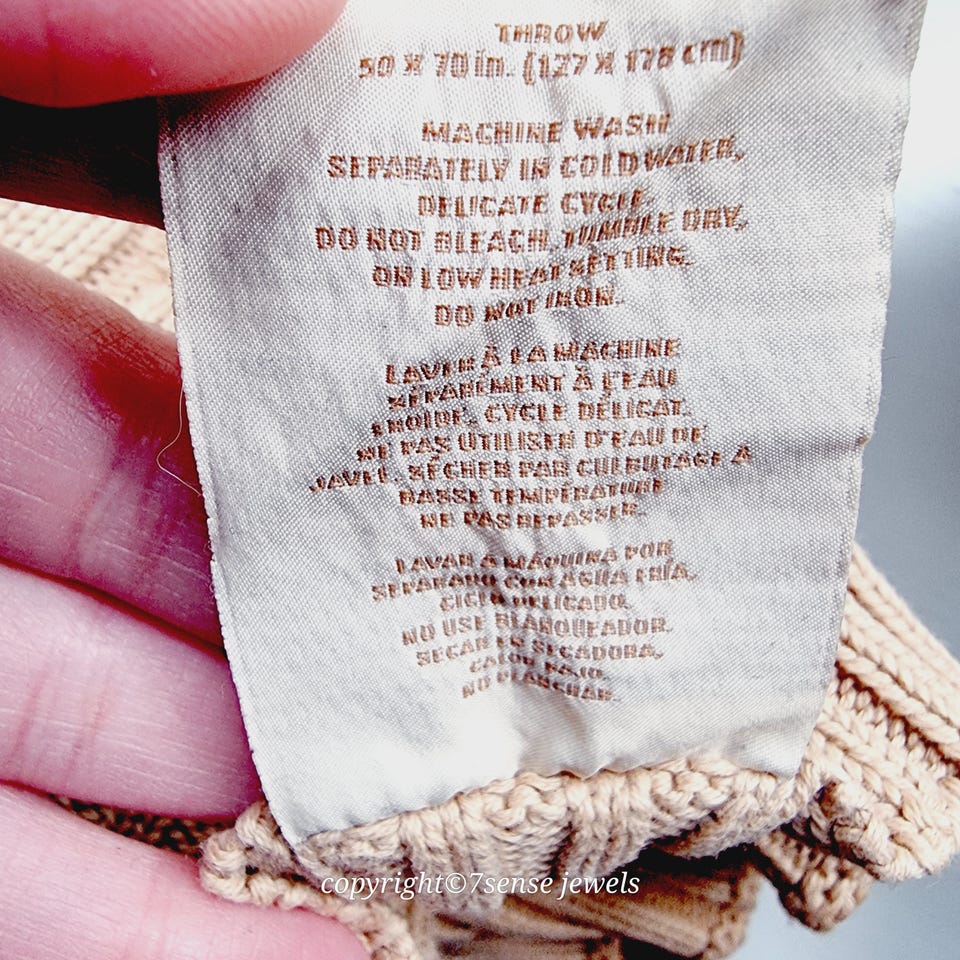 THROW
50 X 70 in. (127 X 178 cm)
MACHINE WASH
SEPARATELY IN COLD WATER,
DELICATE CYCLE.
DO NOT BLEACH. TUMBLE DRY,
ON LOW HEAT SETTING.
DO NOT IRON.
LAVER À LA MACHINE
SÉPARÉMENT À L'EAU
FROIDE, CYCLE DÉLICAT.
NE PAS UTILISER D'EAU DE
JAVEL. SÉCHER PAR CULBUTAGE À
BASSE TEMPÉRATURE
NE PAS REPASSER.
LAVAR A MÁQUINA POR
SEPARADO CON AGUA FRÍA,
CICLO DELICADO.
NO USE BLANQUEADOR.
SECAR EN SECADORA,
CALOR BAJO.
NO PLANCHAR.
copyright©7sense jewels